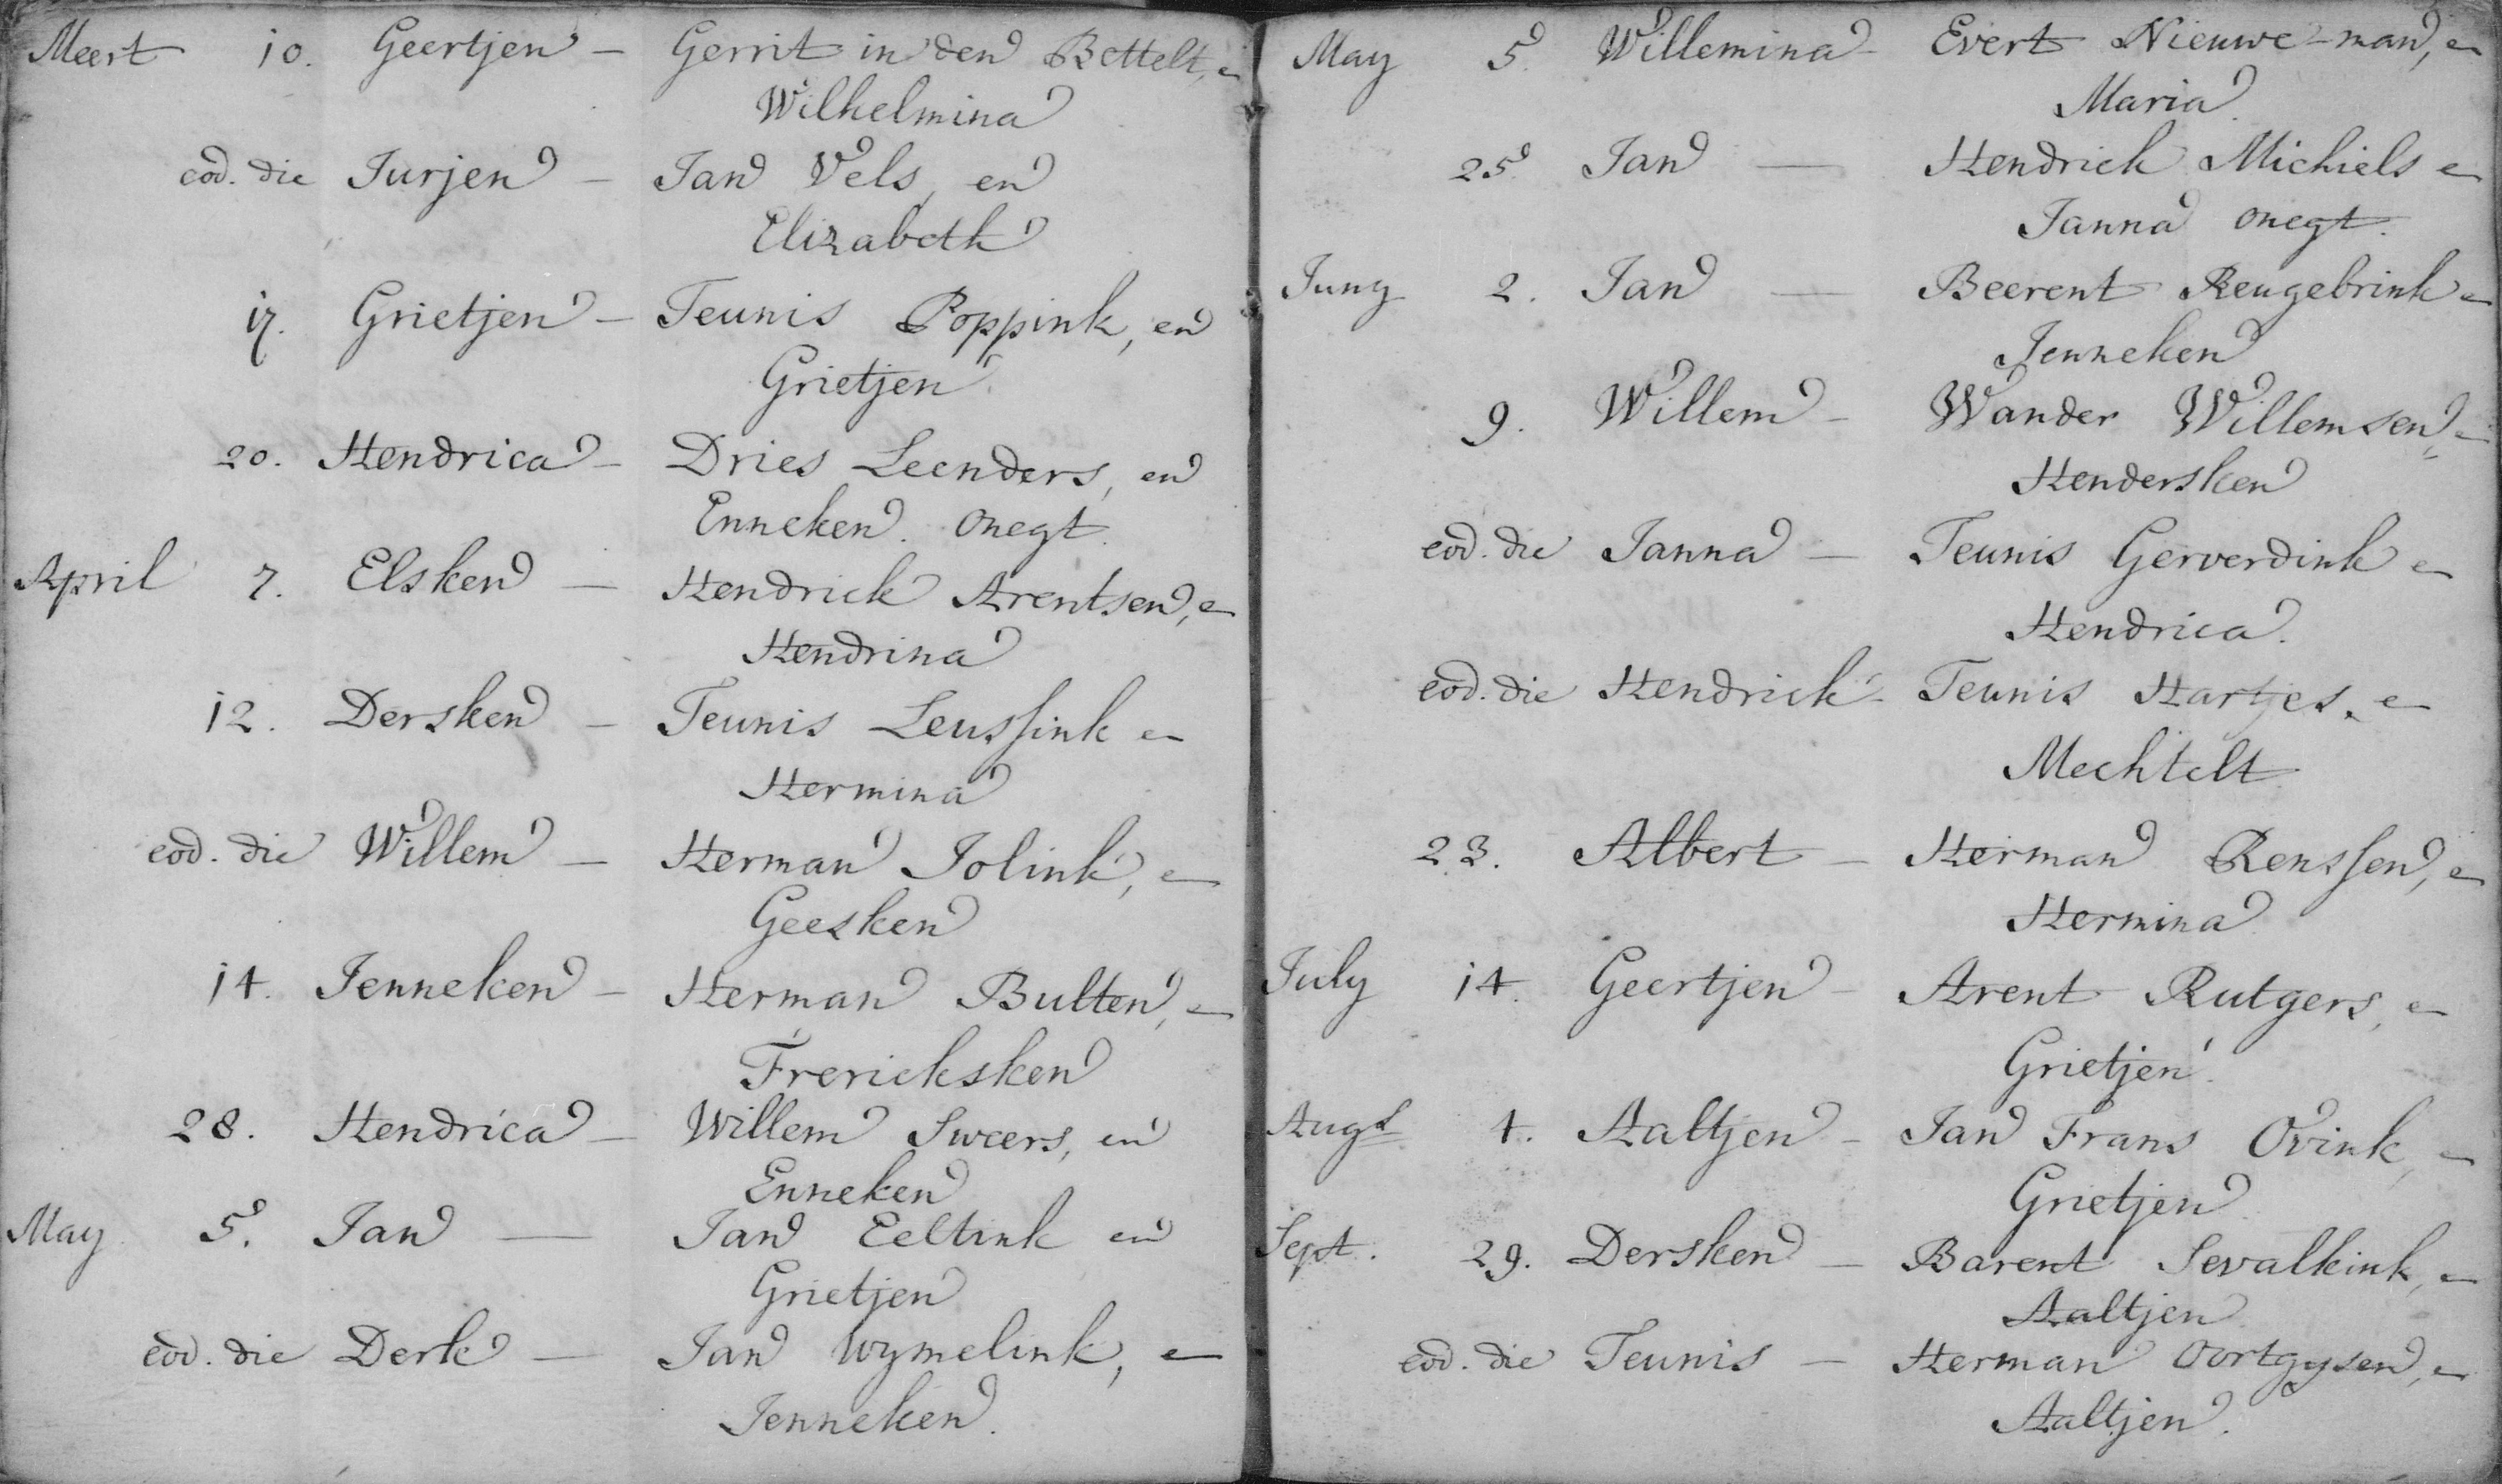 Meert 10. Geertjen - Gerrit in den Bettelt, en
Wilhelmina
eod. die Jurjen - Jan Vels, en
Elizabeth
17. Grietjen - Teunis Poppink, en
Grietjen
20. Hendrica - Dries Leenders, en
Enneken. onegt.
April 7. Elsken - Hendrick Arentsen, en
Hendrina
12. Dersken - Teunis Leussink en
Hermina
eod. die Willem - Herman Jolink, en
Geesken
14. Jenneken - Herman Bulten, en
Frericksken
28. Hendrica - Willem Sweers, en
Enneken
May 5. Jan - Jan Eeltink en
Grietjen
eod. die Derk - Jan Wymelink, en
Jenneken.
May 5. Willemina - Evert Nieuwe-man, en
Maria.
25. Jan - Hendrick Michiels en
Janna onegt.
Juny 2. Jan - Beerent Reugebrink en
Jenneken
9. Willem - Wander Willemsen, en
Hendersken
eod. die Janna - Teunis Gerverdink en
Hendrica.
eod. die Hendrick - Teunis Hartjes. en
Mechtelt
23. Albert - Herman Renssen, en
Hermina
July 14. Geertjen - Arent Rutgers, en
Grietjen.
Augs 4. Aaltjen - Jan Frans Ovink, en
Grietjen
Sept. 29. Dersken - Barent Sevalkink, en
Aaltjen
eod. die Teunis - Herman Oortgysen, en
Aaltjen.